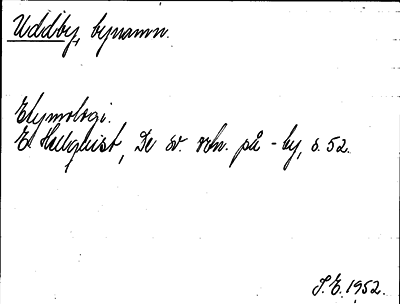 Uddby, bynamn.
Etymologi.
E Hellquist, De sv. ortn. på -by, s. 52.
S.E. 1952.